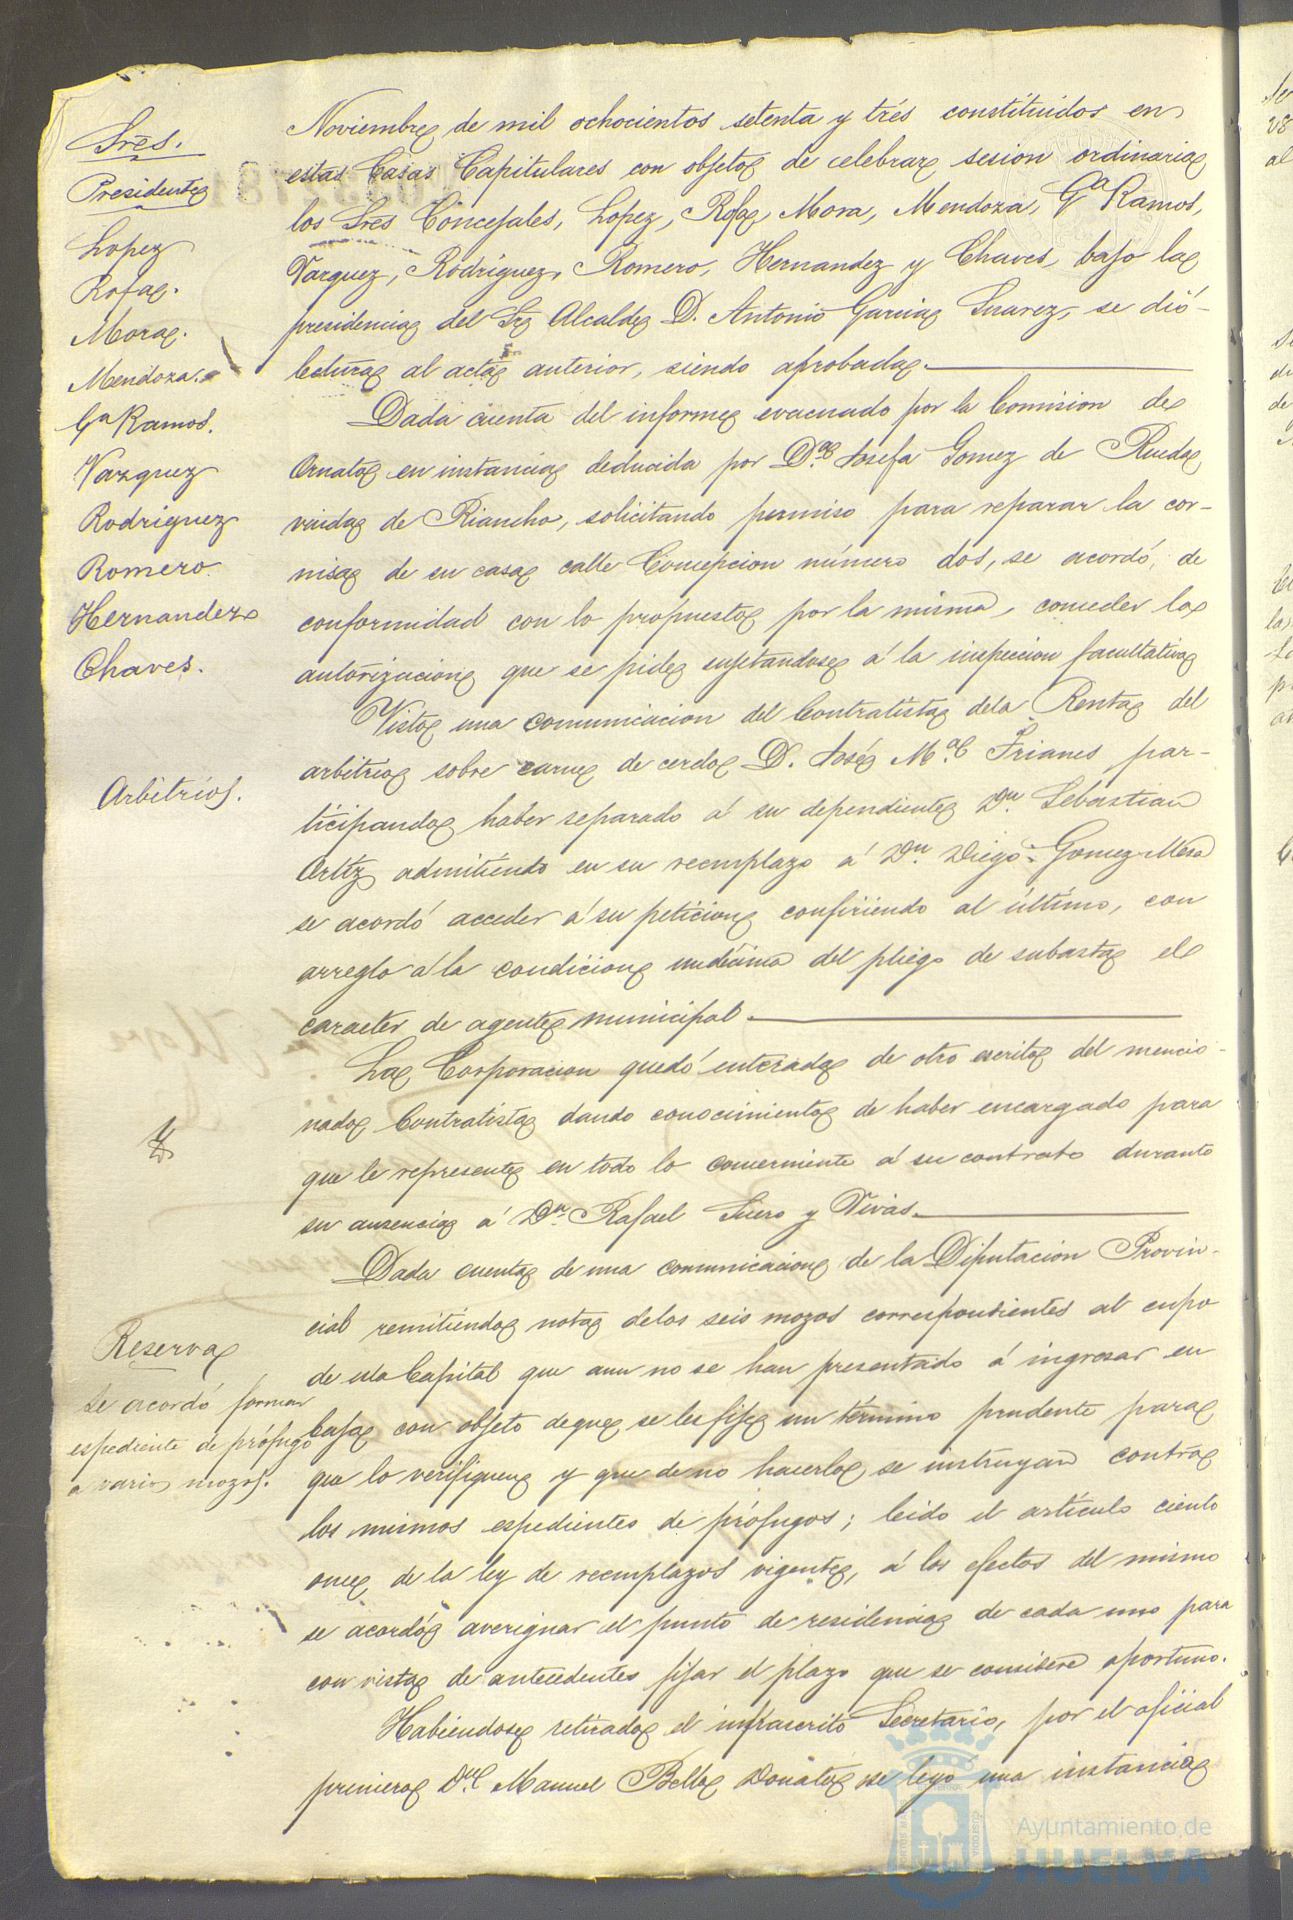 Sres.
Presidente
Lopez
Rofa.
Mora.
Mendoza.
Ga Ramos.
Vazquez
Rodriguez
Romero
Hernandez
Chaves.
Noviembre de mil ochocientos setenta y trés constituidos en
estas Casas Capitulares con objeto de celebrar sesion ordinaria
los Sres Concejales, Lopez, Rofa, Mora, Mendoza, Ga Ramos,
Vazquez, Rodriguez, Romero, Hernandez y Chaves, bajo la
presidencia del Sr Alcalde D. Antonio Garcia Suarez, se dió
lectura al acta anterior, siendo aprobada.
Dada cuenta del informe evacuado por la Comision de
Ornato en instancia deducida por Da Josefa Gomez de Rueda
viuda de Riancho, solicitando permiso para reparar la cor-
nisa de su casa calle Concepcion número dos, se acordó, de
conformidad con lo propuesto por la misma, conceder la
autorizacion que se pide sujetandose á la inspeccion facultativa
Arbitrios.
Vista una comunicacion del Contratista dela Renta del
arbitrio sobre carne de cerdo D. José Ma Frianes par-
ticipando haber separado á su dependiente Dn Sebastian
Ortiz admitiendo en su reemplazo á Dn Diego Gomez Mesa
se acordó acceder á su peticion confiriendo al último, con
arreglo á la condicion undécima del pliego de subasta el
caracter de agente municipal.
La Corporacion quedó enterada de otro escrito del mencio-
nado Contratista dando conocimiento de haber encargado para
que le represente en todo lo concerniente á su contrato durante
su ausencia á Dn Rafael Suero y Vivas.
Reserva
Se acordó formar
espediente de prófugo
a varios mozos.
Dada cuenta de una comunicacion de la Diputacion Provin-
cial remitiendo nota delos seis mozos correspondientes al cupo
de esta Capital que aun no se han presentado á ingresar en
caja con objeto deque se les fije un término prudente para
que lo verifiquen y que de no hacerlo, se instruyan contra
los mismos espedientes de prófugos; leido el artículo ciento
once de la ley de reemplazos vigente, á los efectos del mismo
se acordó averiguar el punto de residencia de cada uno para
con vista de antecedentes fijar el plazo que se considere oportuno.
Habiendose retirado el infrascrito Secretario, por el oficial
primero Dn Manuel Bello Donato se leyó una instancia
Ayuntamiento de
HUELVA